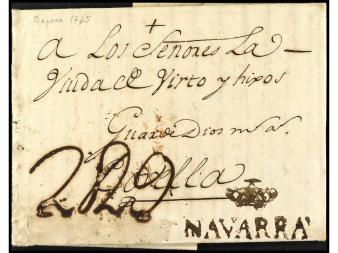 Bayona 1765
+
A Los Señores La
Viuda de Virto y hijos
Guarde Dios m.s a.s
220
NAVARRA